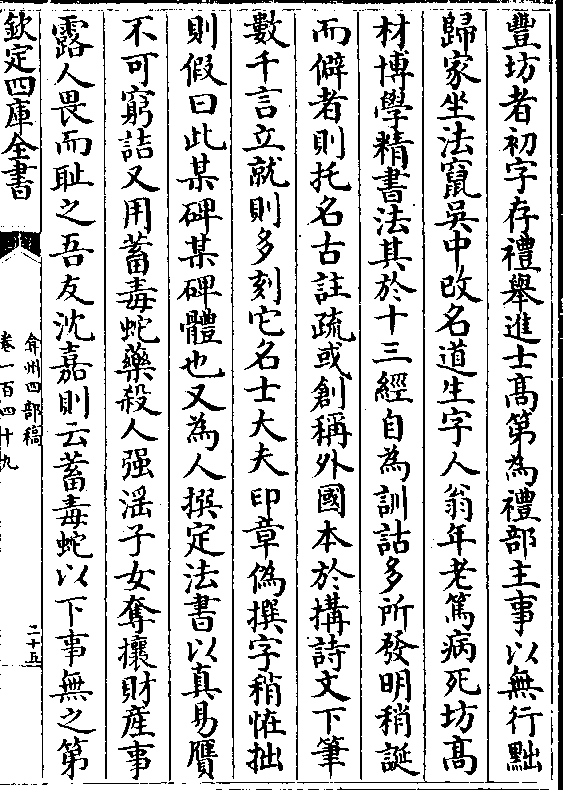 豐坊者初字存禮舉進士髙第為禮部主事以無行黜
歸家坐法竄吳中改名道生字人翁年老篤病死坊髙
材博學精書法其於十三經自為訓詁多所發明稍誕
而僻者則托名古註疏或創稱外國本於搆詩文下筆
數千言立就則多刻它名士大夫印章偽撰字稍恠拙
則假曰此某碑某碑體也又為人撰定法書以真易贋
不可窮詰又用蓄毒蛇藥殺人强淫子女奪攘財産事
露人畏而耻之吾友沈嘉則云蓄毒蛇以下事無之第
欽定四庫全書
弇州四部稿
卷一百四十九
二十五